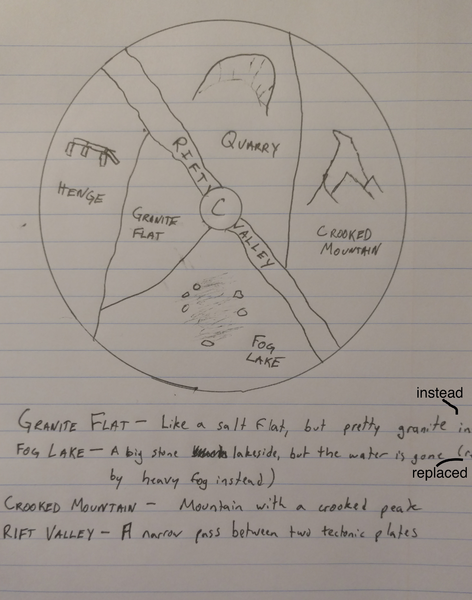 QUARRY
RIFTY
HENGE
C
GRANITE
FLAT
VALLEY
CROOKED
MOUNTAIN
FOG
LAKE
instead
GRANITE FLAT - Like a salt flat, but pretty granite in
FOG LAKE - A big stone lakeside, but the water is gone (r
replaced
by heavy fog instead)
CROOKED MOUNTAIN - Mountain with a crooked peak
RIFT VALLEY - A narrow pass between two tectonic plates